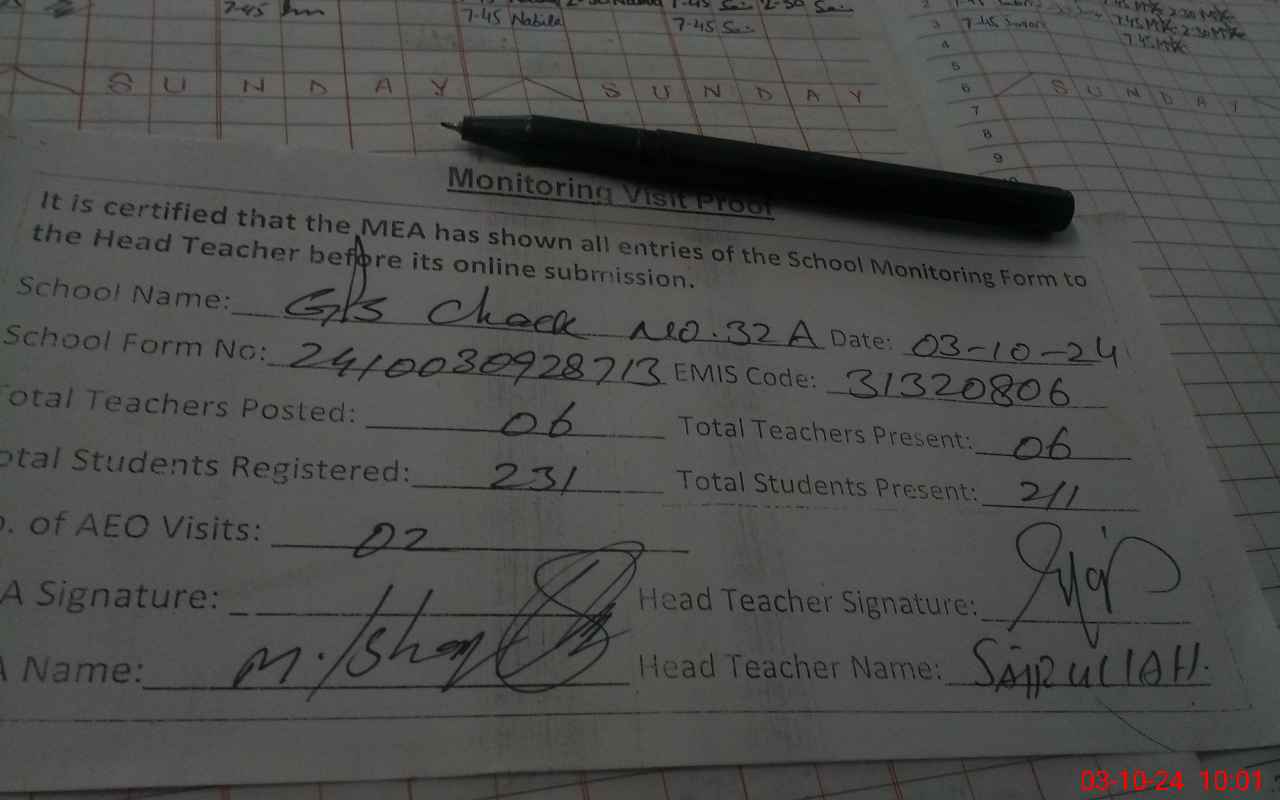 7-45
7-45 Nabila
7-45 Sai
S U N D A Y
S U N D A Y
2
3
4
5
6
7
8
9
S U N D A Y
Monitoring Visit Proof
It is certified that the MEA has shown all entries of the School Monitoring Form to
the Head Teacher before its online submission.
School Name: GPS Chack No. 32 A Date: 03-10-24
School Form No: 2410030928713 EMIS Code: 31320806
otal Teachers Posted: 06 Total Teachers Present: 06
otal Students Registered: 231 Total Students Present: 211
. of AEO Visits: 02
A Signature: Head Teacher Signature:
Name: M. Head Teacher Name:
03-10-24 10:01